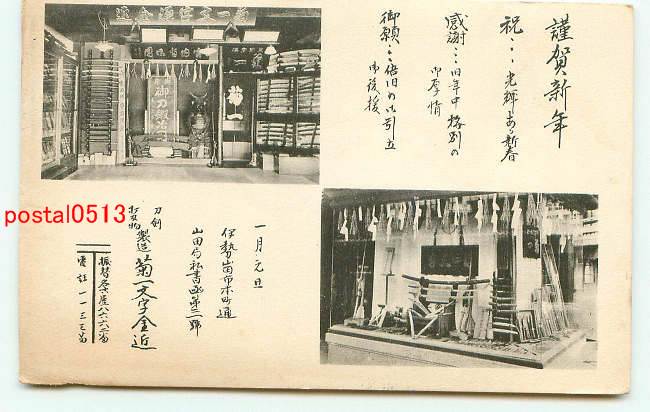 謹賀新年
祝……光輝ある新春
感謝……旧年中格別の
御厚情
御願……倍旧の御引立
御後援
一月元旦
伊勢山田市本町通
山田局私書函第二號
刀剣
打刃物
製造 菊一文字金近
電話一一三三番
菊一
御刀
postal0513